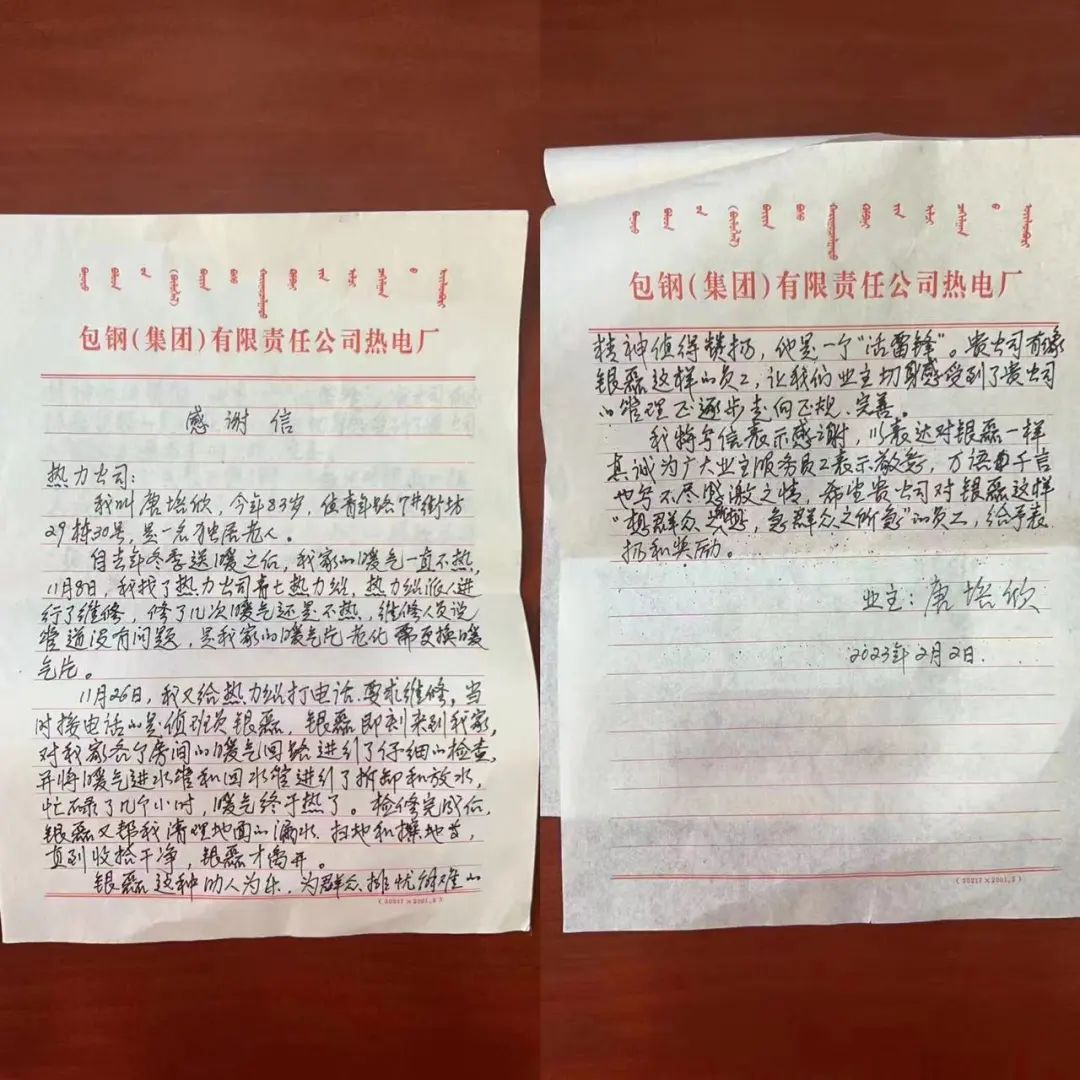 包钢(集团)有限责任公司热电厂
感谢信
热力公司:
我叫唐培欣,今年83岁,住青年路7#街坊
29栋30号,是一名独居老人。
自去年冬季送暖之后,我家的暖气一直不热,
11月8日,我找了热力公司青七热力站,热力站派人进
行了维修,修了几次暖气还是不热,维修人员说
管道没有问题,是我家的暖气片老化需更换暖
气片。
11月26日,我又给热力站打电话要求维修,当
时接电话的是值班员银磊,银磊即刻来到我家,
对我家各个房间的暖气回路进行了仔细的检查,
并将暖气进水管和回水管进行了拆卸和放水,
忙碌了几个小时,暖气终于热了。检修完成后,
银磊又帮我清理地面的漏水、扫地和擦地等,
直到收拾干净,银磊才离开。
银磊这种助人为乐,为群众排忧解难的
(30217×2001.2)
包钢(集团)有限责任公司热电厂
精神值得赞扬,他是一个"活雷锋"。贵公司有像
银磊这样的员工,让我们业主切身感受到了贵公司
的管理正逐步走向正规、完善。
我特写信表示感谢,以表达对银磊一样
真诚为广大业主服务员工表示敬意,万语千言
也写不尽感激之情,希望贵公司对银磊这样
"想群众所想,急群众之所急"的员工,给予表
扬和奖励。
业主:唐培欣
2023年2月2日.
(30217×2001.2)